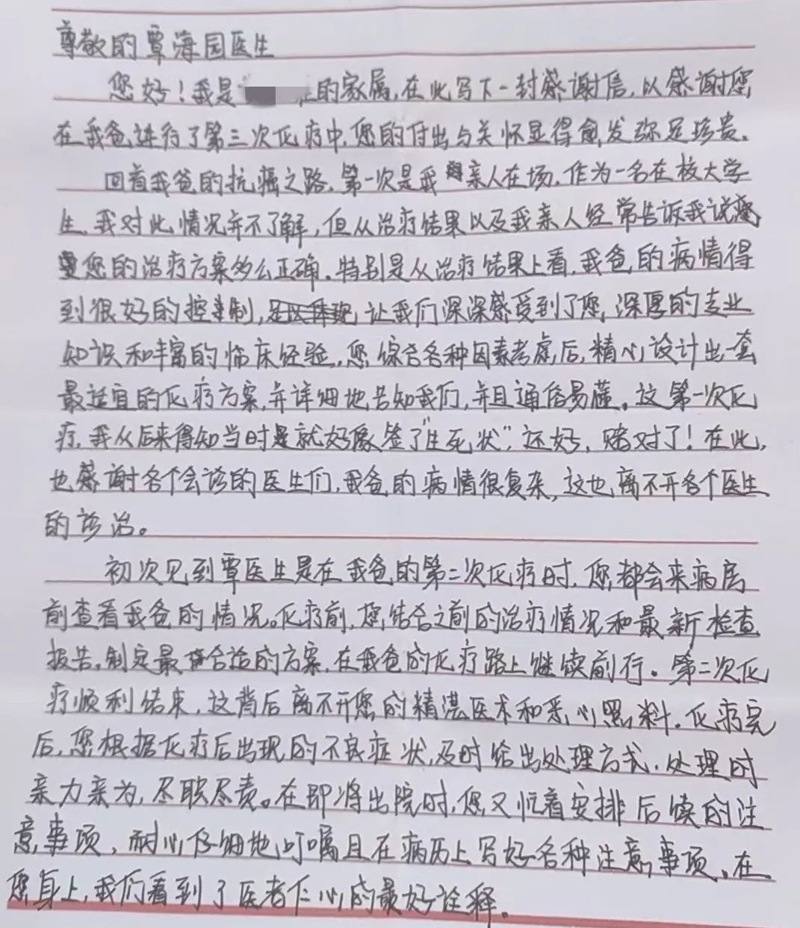 尊敬的覃海园医生
您好！我是 的家属，在此写下一封感谢信，以感谢您
在我爸进行了第三次化疗中，您的付出与关怀显得愈发弥足珍贵。
回首我爸的抗癌之路，第一次是我亲人在场，作为一名在校大学
生，我对此情况并不了解，但从治疗结果以及我亲人经常告诉我说
您的治疗方案多么正确。特别是从治疗结果上看，我爸的病情得
到很好的控制，让我们深深感受到了您，深厚的专业
知识和丰富的临床经验，您综合各种因素考虑后，精心设计出一套
最适宜的化疗方案，并详细地告知我们，并且通俗易懂。这第一次化
疗，我从后来得知当时是就好像签了“生死状”，还好，赌对了！在此，
也感谢各个会诊的医生们，我爸的病情很复杂，这也离不开各个医生
的诊治。
初次见到覃医生是在我爸的第二次化疗时，您都会来病房
前查看我爸的情况。化疗前，您结合之前的治疗情况和最新检查
报告，制定最合适的方案，在我爸的化疗路上继续前行。第二次化
疗顺利结束，这背后离不开您的精湛医术和悉心照料。化疗完
后，您根据化疗后出现的不良症状，及时给出处理方式，处理时
亲力亲为，尽职尽责。在即将出院时，您又忙着安排后续的注
意事项，耐心仔细地叮嘱且在病历上写好各种注意事项。在
您身上，我们看到了医者仁心的最好诠释。